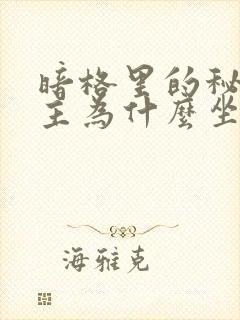 暗格里的秘
主為什麼坐
海雅克